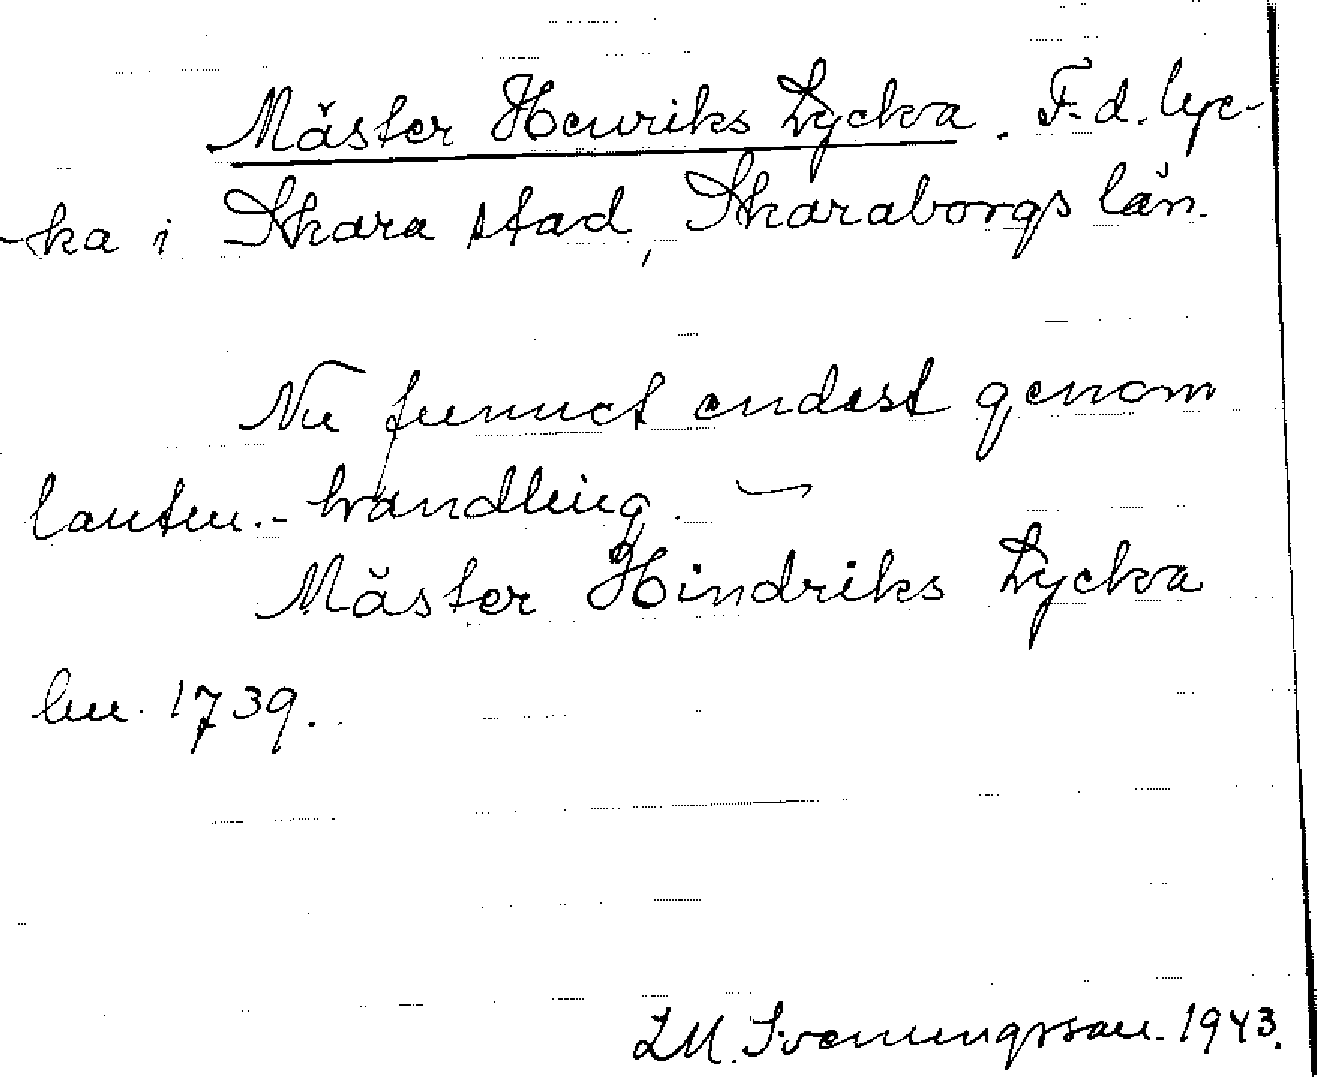 Mäster Henriks Lycka. F.d. lyc-
-ka i Skara stad, Skaraborgs län.
Nu funnet endast genom
lantm.-handling. –
Mäster Hindriks Lycka
lm. 1739.
LM. Svenungsson. 1943.